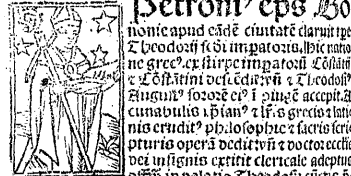 Petroni⁹ ep̄s Bo
nonie apud eādē ciuitatē claruit tp̄e
Theodosij scḋi imp̄atoris. Hic natio
ne grec⁹. ex stirpe imp̄atorū Cōstāti
⁊ Cōstātini descēdit
August⁹ sororē ei⁹ ī ꝯiugē accepit. A
cunabulis xp̄ian⁹ ⁊ lr̄is grecis ⁊ latin
nis erudit⁹ philosophie ⁊ sacris scri
pturis operā dedit doctor eccl̄ie
dei insignis extitit clericale adeptus
in palatio Theodosij